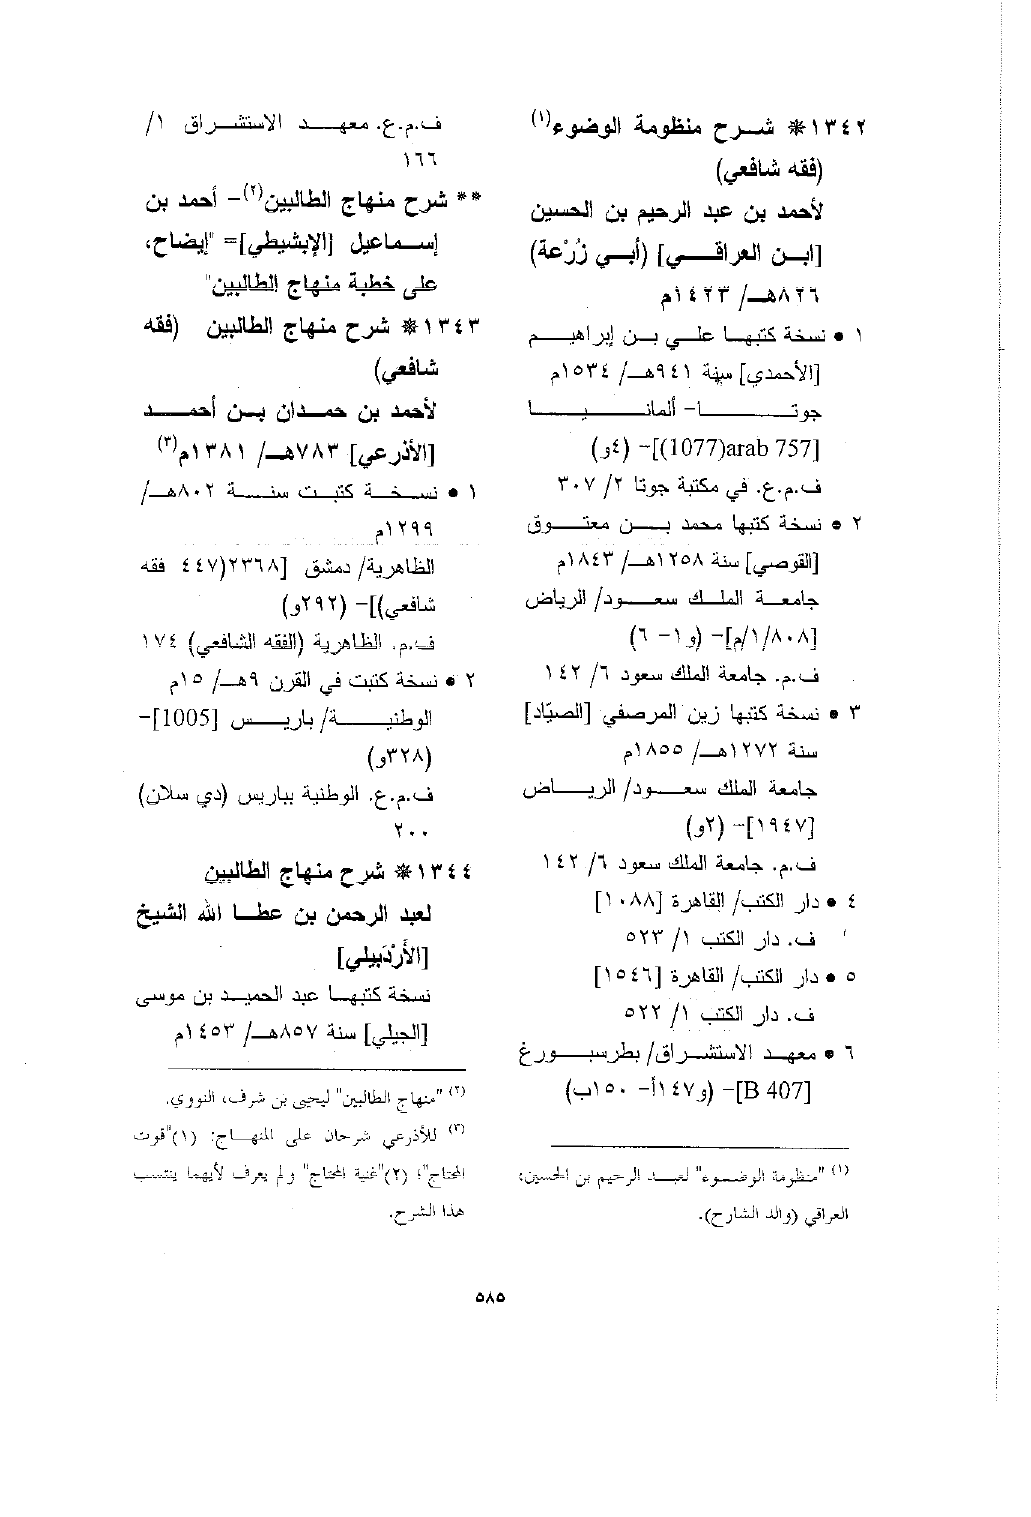 ١٣٤٢* شرح منظومة الوضوء(١)
(فقه شافعي)
لأحمد بن عبد الرحيم بن الحسين
[ابن العراقي] (أبي زُرْعة)
٨٢٦هـ/ ١٤٢٣م
١ • نسخة كتبها علي بن إبراهيم
[الأحمدي] سنة ٩٤١هـ/ ١٥٣٤م
جوتا- ألمانيا
[(1077)arab 757]- (٤و)
ف.م.ع. في مكتبة جوتا ٢/ ٣٠٧
٢ • نسخة كتبها محمد بن معتوق
[القوصي] سنة ١٢٥٨هـ/ ١٨٤٣م
جامعة الملك سعود/ الرياض
[١/٨٠٨/م]- (و١- ٦)
ف.م. جامعة الملك سعود ٦/ ١٤٢
٣ • نسخة كتبها زين المرصفي [الصيّاد]
سنة ١٢٧٢هـ/ ١٨٥٥م
جامعة الملك سعود/ الرياض
[١٩٤٧]- (٢و)
ف.م. جامعة الملك سعود ٦/ ١٤٢
٤ • دار الكتب/ القاهرة [١٠٨٨]
ف. دار الكتب ١/ ٥٢٣
٥ • دار الكتب/ القاهرة [١٥٤٦]
ف. دار الكتب ١/ ٥٢٢
٦ • معهد الاستشراق/ بطرسبورغ
[B 407]- (و١٤٧أ- ١٥٠ب)
(١) "منظومة الوضوء" لعبد الرحيم بن الحسين،
العراقي (والد الشارح).
ف.م.ع. معهد الاستشراق ١/
١٦٦
** شرح منهاج الطالبين(٢)- أحمد بن
إسماعيل [الإبشيطي]= "إيضاح،
على خطبة منهاج الطالبين"
١٣٤٣* شرح منهاج الطالبين (فقه
شافعي)
لأحمد بن حمدان بن أحمد
[الأذرعي] ٧٨٣هـ/ ١٣٨١م(٣)
١ • نسخة كتبت سنة ٨٠٢هـ/
١٢٩٩م
الظاهرية/ دمشق [٢٣٦٨(٤٤٧ فقه
شافعي)]- (٢٩٢و)
ف.م. الظاهرية (الفقه الشافعي) ١٧٤
٢ • نسخة كتبت في القرن ٩هـ/ ١٥م
الوطنية/ باريس [1005]-
(٣٢٨و)
ف.م.ع. الوطنية بباريس (دي سلان)
٢٠٠
١٣٤٤* شرح منهاج الطالبين
لعبد الرحمن بن عطا الله الشيخ
[الأَرْدَبيلي]
نسخة كتبها عبد الحميد بن موسى
[الجيلي] سنة ٨٥٧هـ/ ١٤٥٣م
(٢) "منهاج الطالبين" ليحيى بن شرف، النووي.
(٣) للأذرعي شرحان على المنهاج: (١)"قوت
المحتاج"؛ (٢)"غنية المحتاج" ولم يعرف لأيهما ينتسب
هذا الشرح.
٥٨٥